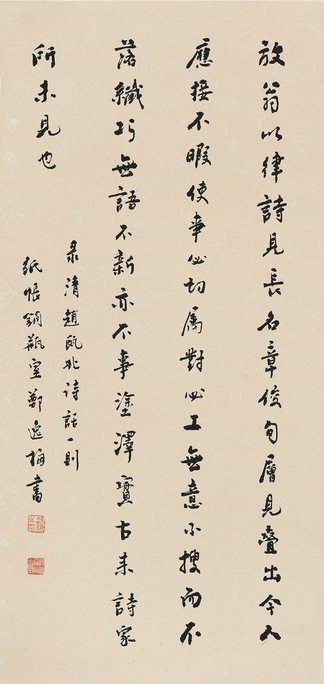 放翁以律詩見長名章俊句層見疊出令人
應接不暇使事必切屬對必工無意不搜而不
落纖巧無語不新亦不事塗澤實古來詩家
所未見也
录清趙甌北詩話一則
紙帳銅瓶室鄭逸梅書